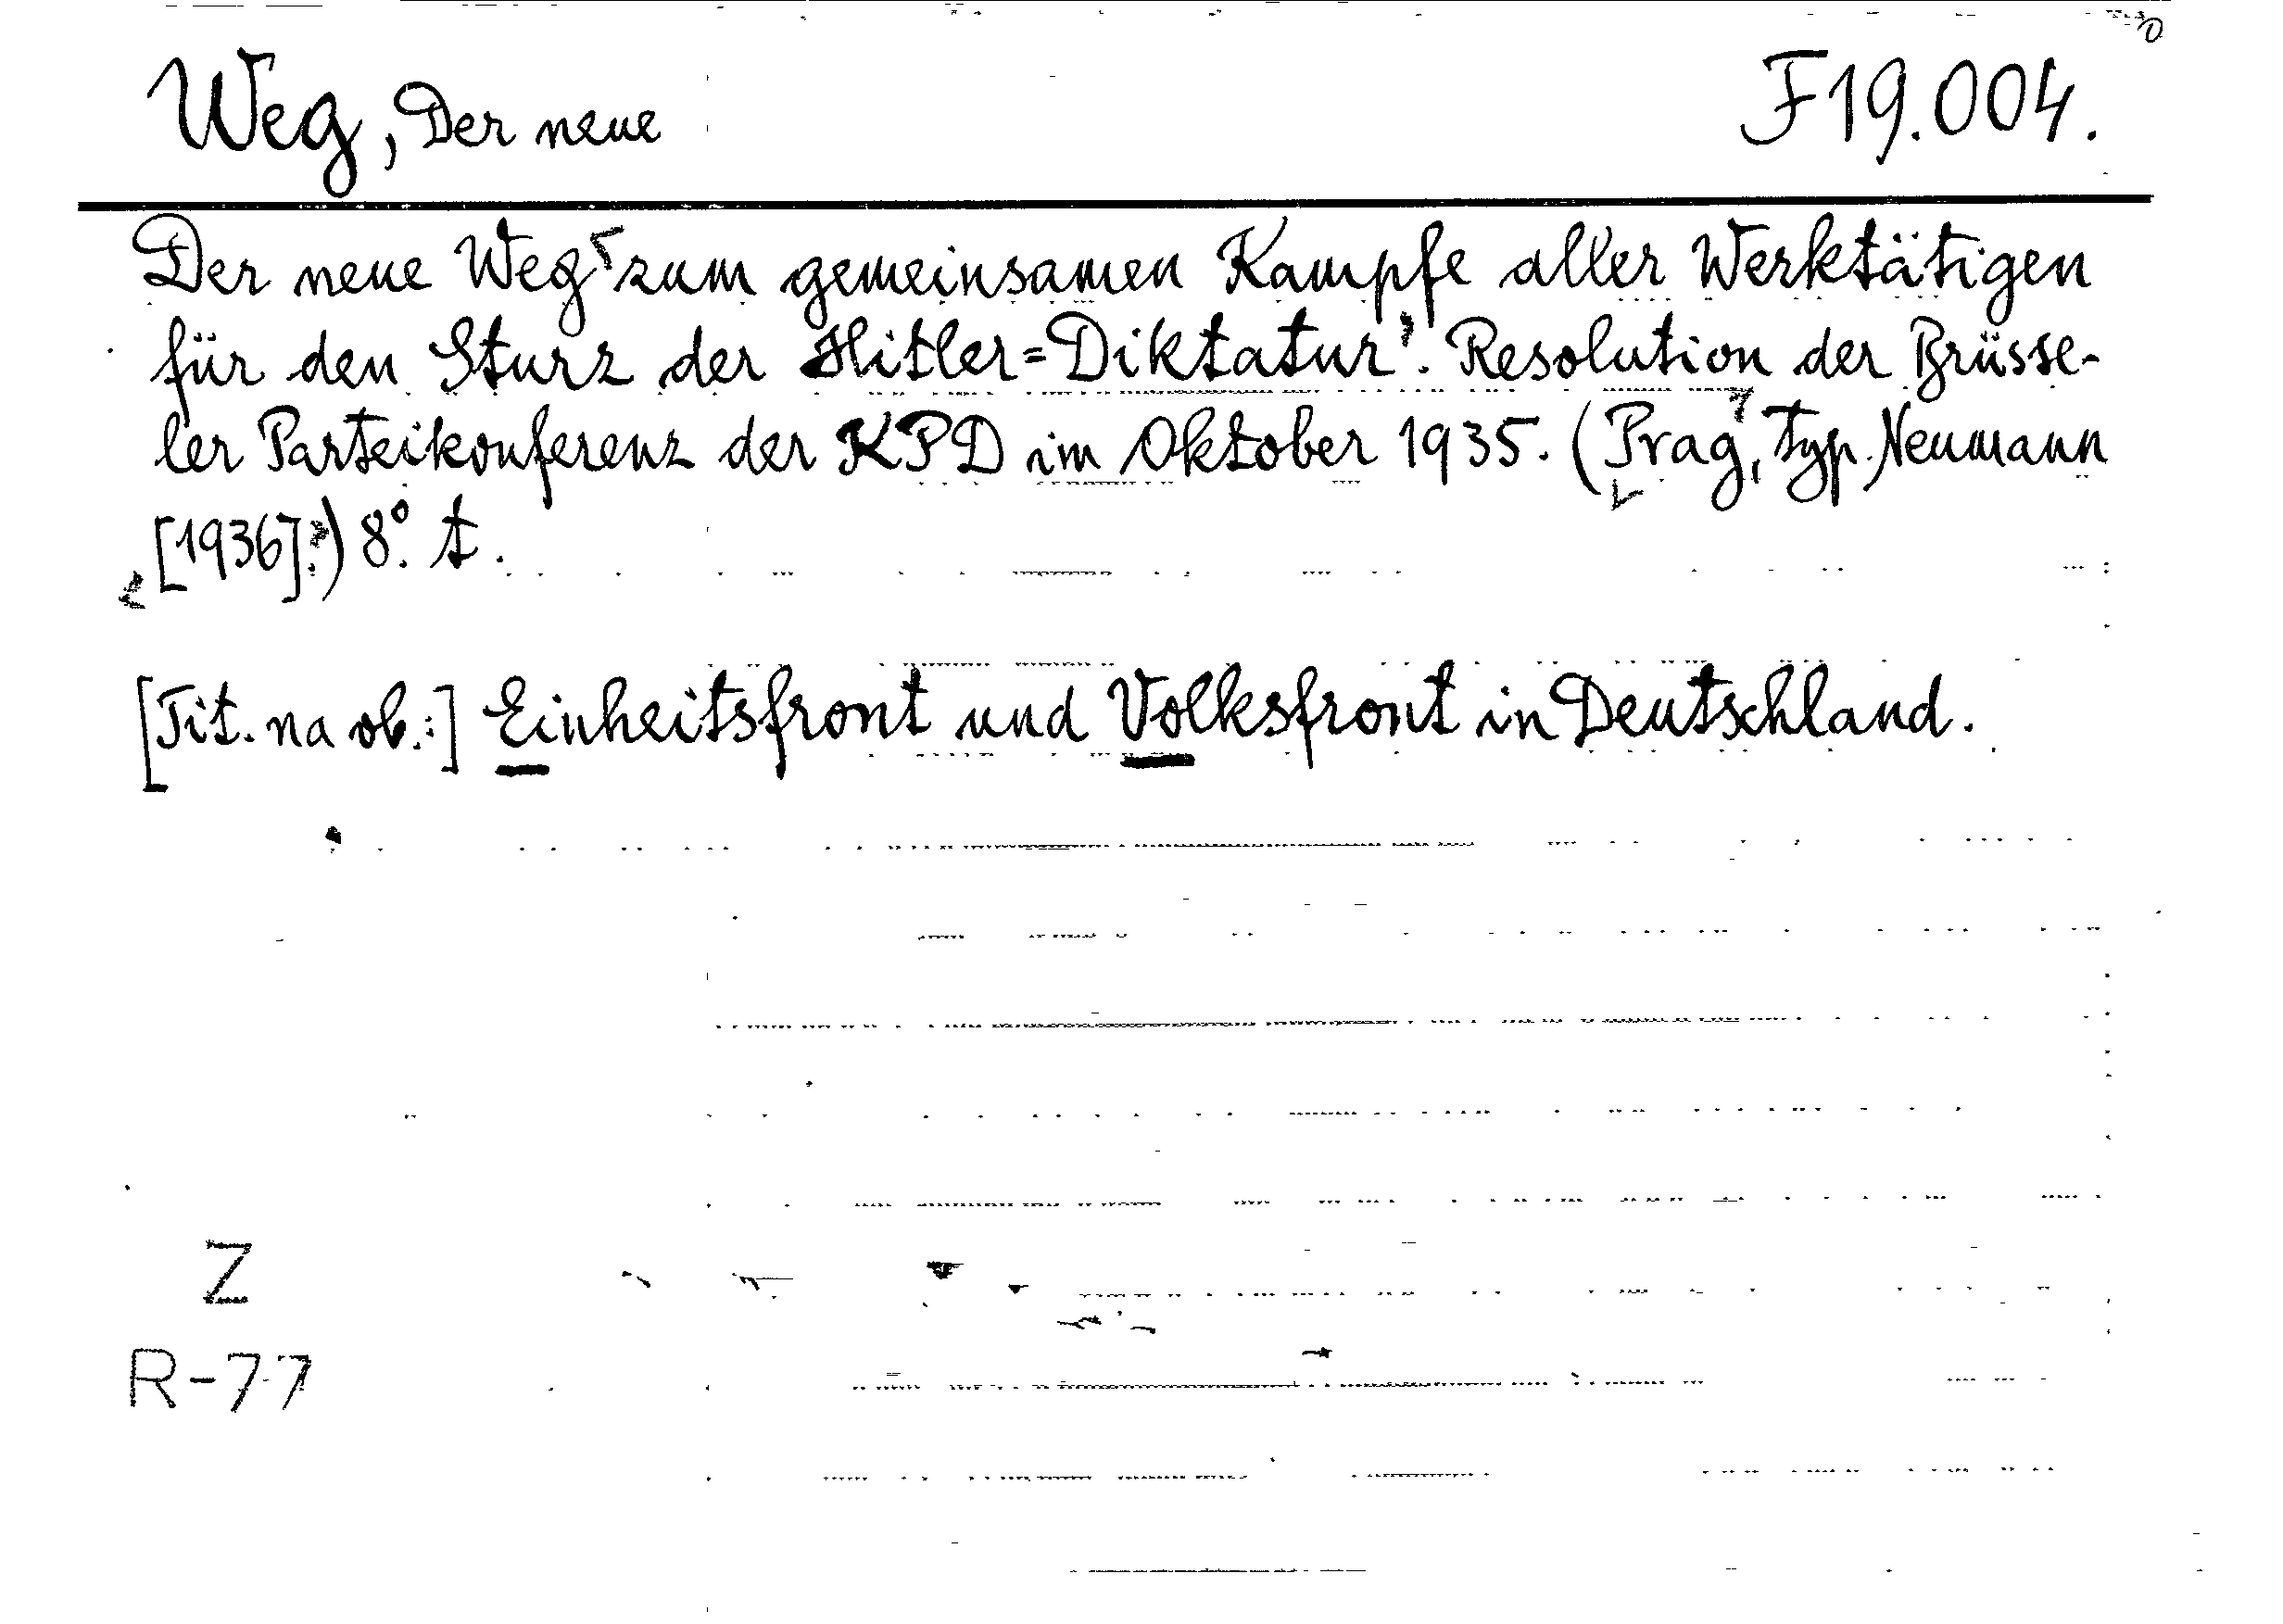 Weg, Der neue F19.004.
Der neue Weg zum gemeinsamen Kampfe aller Werktätigen
für den Sturz der Hitler=Diktatur. Resolution der Brüsse-
ler Parteikonferenz der KPD im Oktober 1935. (Prag, typ. Neumann
[1936].) 8°. t.
[Tit. na ob.:] Einheitsfront und Volksfront in Deutschland.
Z
R-77